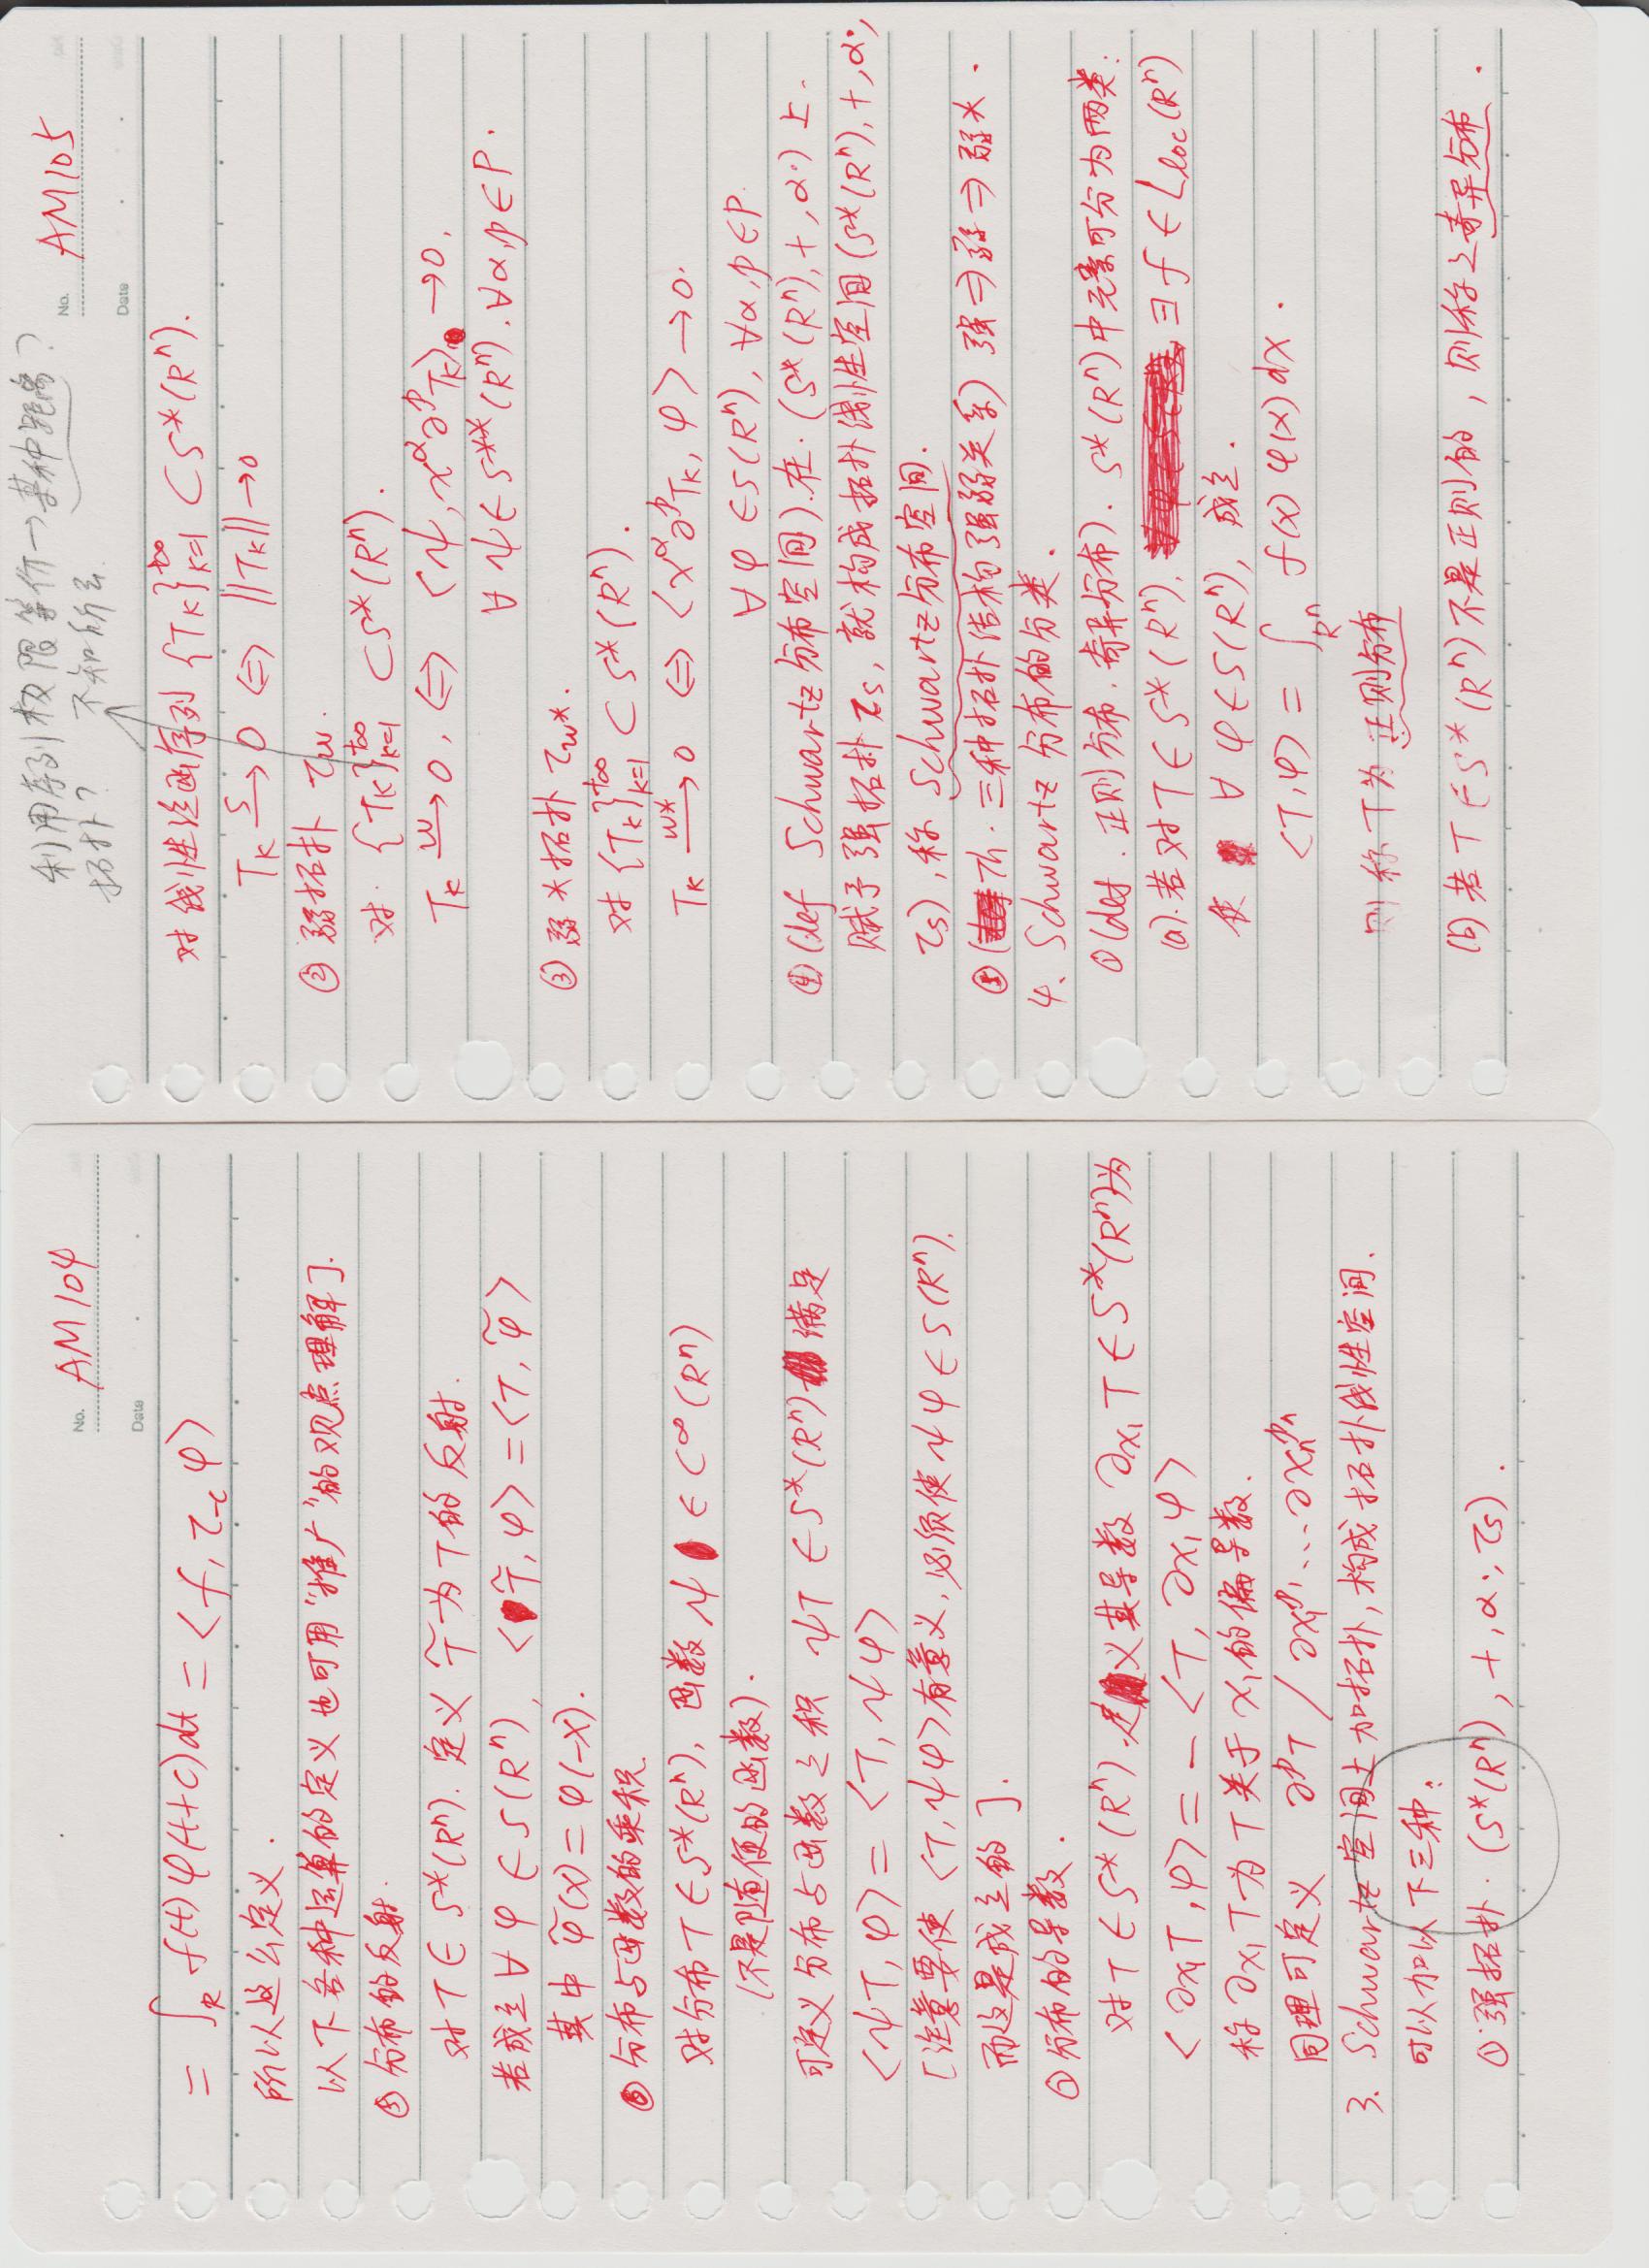 No. AM104
Date
= ∫_R f(t) φ(t+c) dt = <f, τ_{-c} φ>
所以这么定义.
以下各种运算的定义也可用“推广”的观点理解].
⑤ 分布的反射.
对 T ∈ S*(Rⁿ). 定义 T̃ 为 T 的反射.
若成立 ∀ φ ∈ S(Rⁿ), <T̃, φ> = <T, φ̃>
其中 φ̃(x) = φ(-x).
⑥ 分布与函数的乘积.
对分布 T ∈ S*(Rⁿ), 函数 ψ ∈ C^∞(Rⁿ)
(不是随便的函数).
可定义分布与函数之积 ψT ∈ S*(Rⁿ) 满足
<ψT, φ> = <T, ψφ>
[注意要使 <T, ψφ> 有意义, 必须使 ψφ ∈ S(Rⁿ),
而这是成立的].
⑦ 分布的导数.
对 T ∈ S*(Rⁿ). 定义其导数 ∂x₁ T ∈ S*(Rⁿ) 为
<∂x₁T, φ> = - <T, ∂x₁φ>
称 ∂x₁T 为 T 关于 x₁ 的偏导数.
同理可定义 ∂^p T / ∂x₁^{p₁} ... ∂xₙ^{pₙ}
3. Schwartz 空间上加拓扑, 构成拓扑线性空间.
可以加以下三种:
① 强拓扑. (S*(Rⁿ), +, α·, τs).
利用序列极限等价→某种距离?
拓扑? 不知所云.
No. AM105
Date
对线性泛函序列 {T_k}_{k=1}^{+∞} ⊂ S*(Rⁿ).
T_k —S→ 0 ⇔ ||T_k|| → 0
② 弱拓扑 τw.
对. {T_k}_{k=1}^{+∞} ⊂ S*(Rⁿ).
T_k —w→ 0, ⇔ <ψ, x^α ∂^p T_k> → 0,
∀ ψ ∈ S**(Rⁿ). ∀α, p ∈ P.
③ 弱*拓扑 τw*.
对 {T_k}_{k=1}^{+∞} ⊂ S*(Rⁿ).
T_k —w*→ 0 ⇔ <x^α ∂^p T_k, φ> → 0.
∀ φ ∈ S(Rⁿ), ∀α, p ∈ P.
④ (def Schwartz 分布空间). 在. (S*(Rⁿ), +, α·) 上.
赋予强拓扑 τs, 就构成拓扑线性空间 (S*(Rⁿ), +, α·,
τs), 称 Schwartz 分布空间.
⑤ (Th. 三种拓扑结构强弱关系) 强 ⇒ 弱 ⇒ 弱*.
4. Schwartz 分布的分类.
① (def. 正则分布. 奇异分布). S*(Rⁿ) 中元素可分为两类:
(a). 若对 T ∈ S*(Rⁿ), ∃ f ∈ L_loc(Rⁿ)
使 ∀ φ ∈ S(Rⁿ), 成立.
<T, φ> = ∫_{Rⁿ} f(x) φ(x) dx.
则称 T 为 正则分布
(b) 若 T ∈ S*(Rⁿ) 不是正则的, 则称之奇异分布.